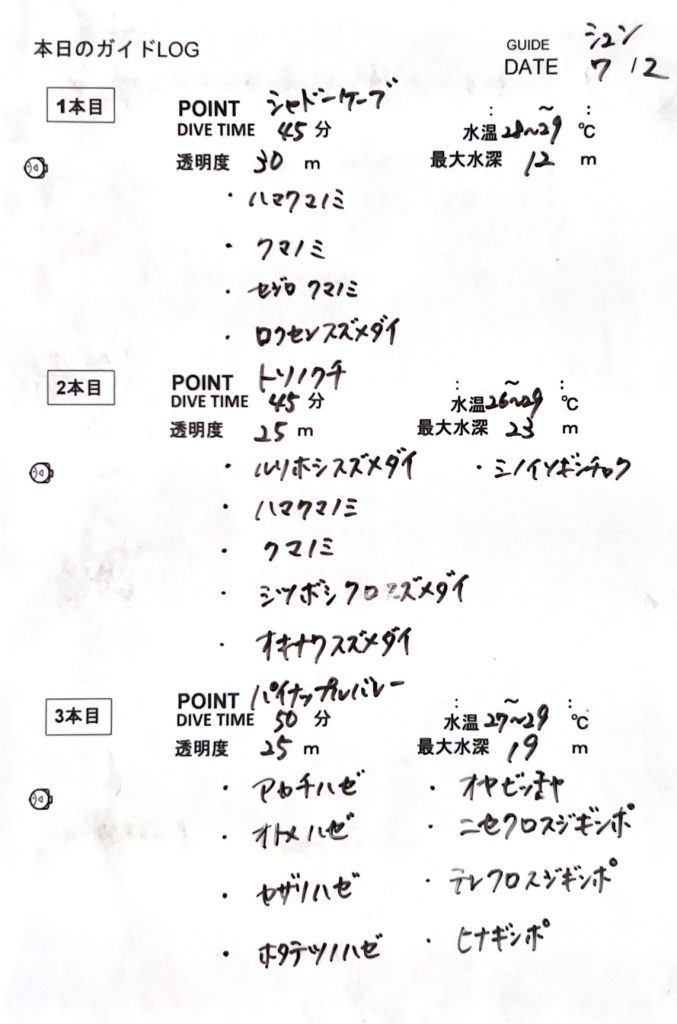 本日のガイドLOG
GUIDE シュン
DATE 7 12
1本目
POINT シャドーケーブ : ～ :
DIVE TIME 45 分 水温 28~29 ℃
透明度 30 m 最大水深 12 m
・ハマクマノミ
・クマノミ
・セジロクマノミ
・ロクセンスズメダイ
2本目
POINT トソノクチ : ～ :
DIVE TIME 45 分 水温 26~29 ℃
透明度 25 m 最大水深 23 m
・ルリホシスズメダイ ・ミノイソギンチャク
・ハマクマノミ
・クマノミ
・ミツボシクロスズメダイ
・オキナワスズメダイ
3本目
POINT パイナップルバレー : ～ :
DIVE TIME 50 分 水温 27~29 ℃
透明度 25 m 最大水深 19 m
・アカチハゼ ・オヤビッチャ
・オトメハゼ ・ニセクロスジギンポ
・ヤザリハゼ ・テンクロスジギンポ
・ホタテツノハゼ ・ヒナギンポ